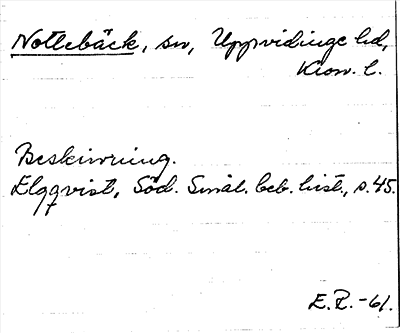 Nottebäck, sn, Uppvidinge hd,
Kron. l.
Beskivning.
Elgqvist, Söd. Smål. beb. hist., s. 45.
E.R. -61.